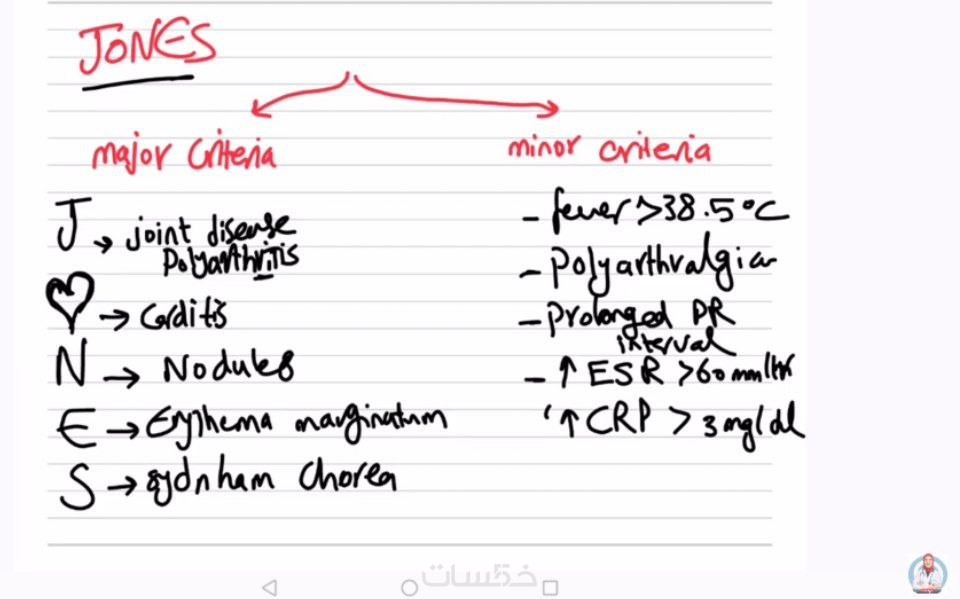 JONES
major Criteria
minor criteria
J → joint disease
polyarthritis
→ Carditis
N → Nodules
E → Erythema marginatum
S → sydnham Chorea
- fever >38.5°C
- polyarthralgia
- Prolonged PR
interval
- ↑ ESR >60 mm/hr
' ↑ CRP > 3 mg/dl
خمسات